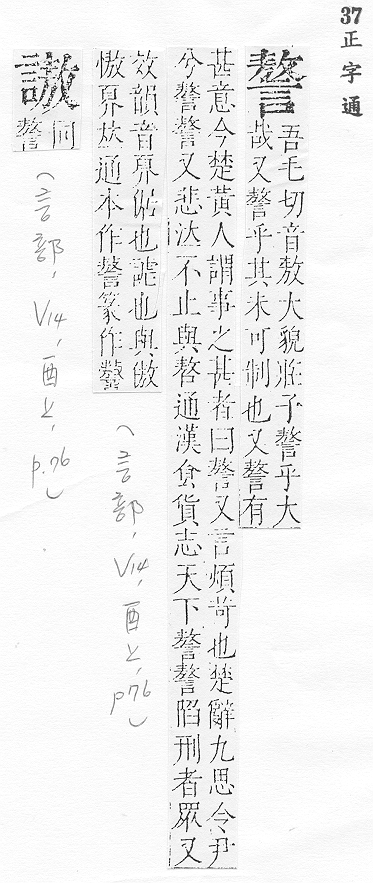 37正字通
謷
吾毛切音敖大貌莊子謷乎大
哉又謷乎其未可制也又謷有
甚意今楚黃人謂事之甚者曰謷又言煩苛也楚辭九思令尹
兮謷謷又悲泣不止與嗸通漢食貨志天下謷謷陷刑者眾又
效韻音奡倨也䛩也與傲
慠奡𡘇通本作謷篆作謷
(言部,V14,酉上,p.76)
𧩮
同
謷
(言部,V14,酉上,p.76)